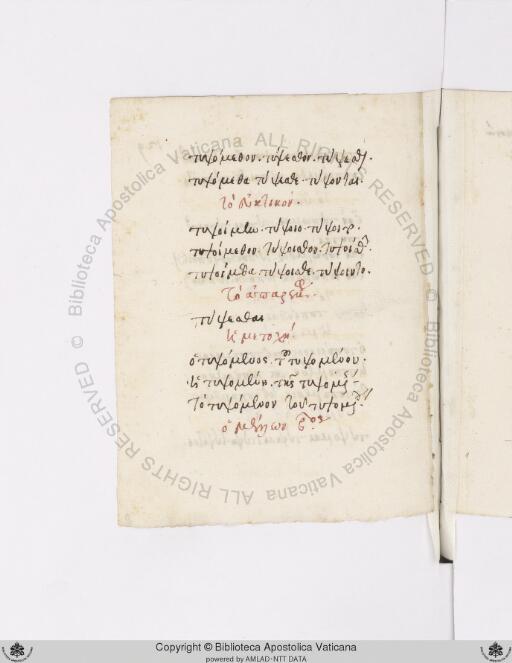 τυψόμεθον. τύψεσθον. τύψεσθον.
τυψόμεθα τύψεσθε. τύψονται.
τὸ εὐκτικόν.
τυψοίμην. τύψοιο. τύψοιτο.
τυψοίμεθον. τύψοισθον. τυψοίσθην
τυψοίμεθα τύψοισθε. τύψοιντο.
τὸ ἀπαρέμφατον.
τύψεσθαι
ἡ μετοχή
ὁ τυψόμενος. τοῦ τυψομένου.
ἡ τυψομένη. τῆς τυψομένης
τὸ τυψόμενον τοῦ τυψομένου
ὁ μέλλων βος
Copyright © Biblioteca Apostolica Vaticana
powered by AMLAD-NTT DATA
© Biblioteca Apostolica Vaticana ALL RIGHTS RESERVED
© Biblioteca Apostolica Vaticana ALL RIGHTS RESERVED